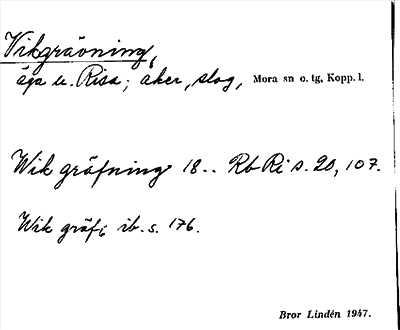 Vikgrävning,
äga u. Risa; åker, slog, Mora sn o. tg, Kopp. l.
Wik gräfning 18.. Rb Ri s. 20, 107.
Wik gräf, ib. s. 176.
Bror Lindén 1947.